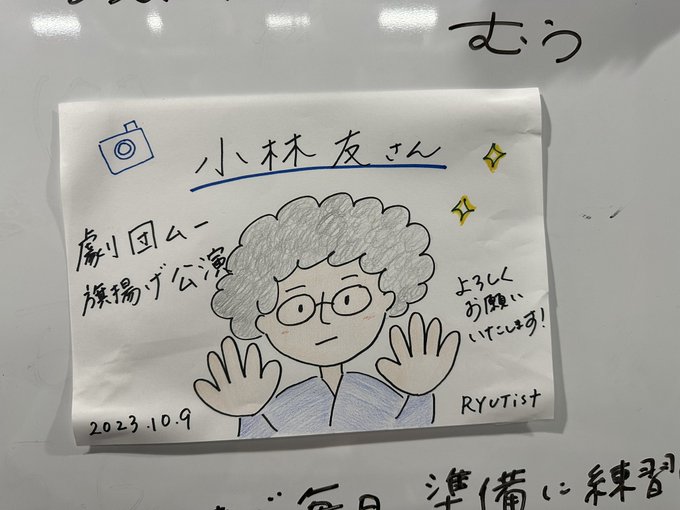 むう
小林友さん
劇団ムー
旗揚げ公演
よろしく
お願い
いたします!
2023.10.9
RYUTist
毎日 準備に練習